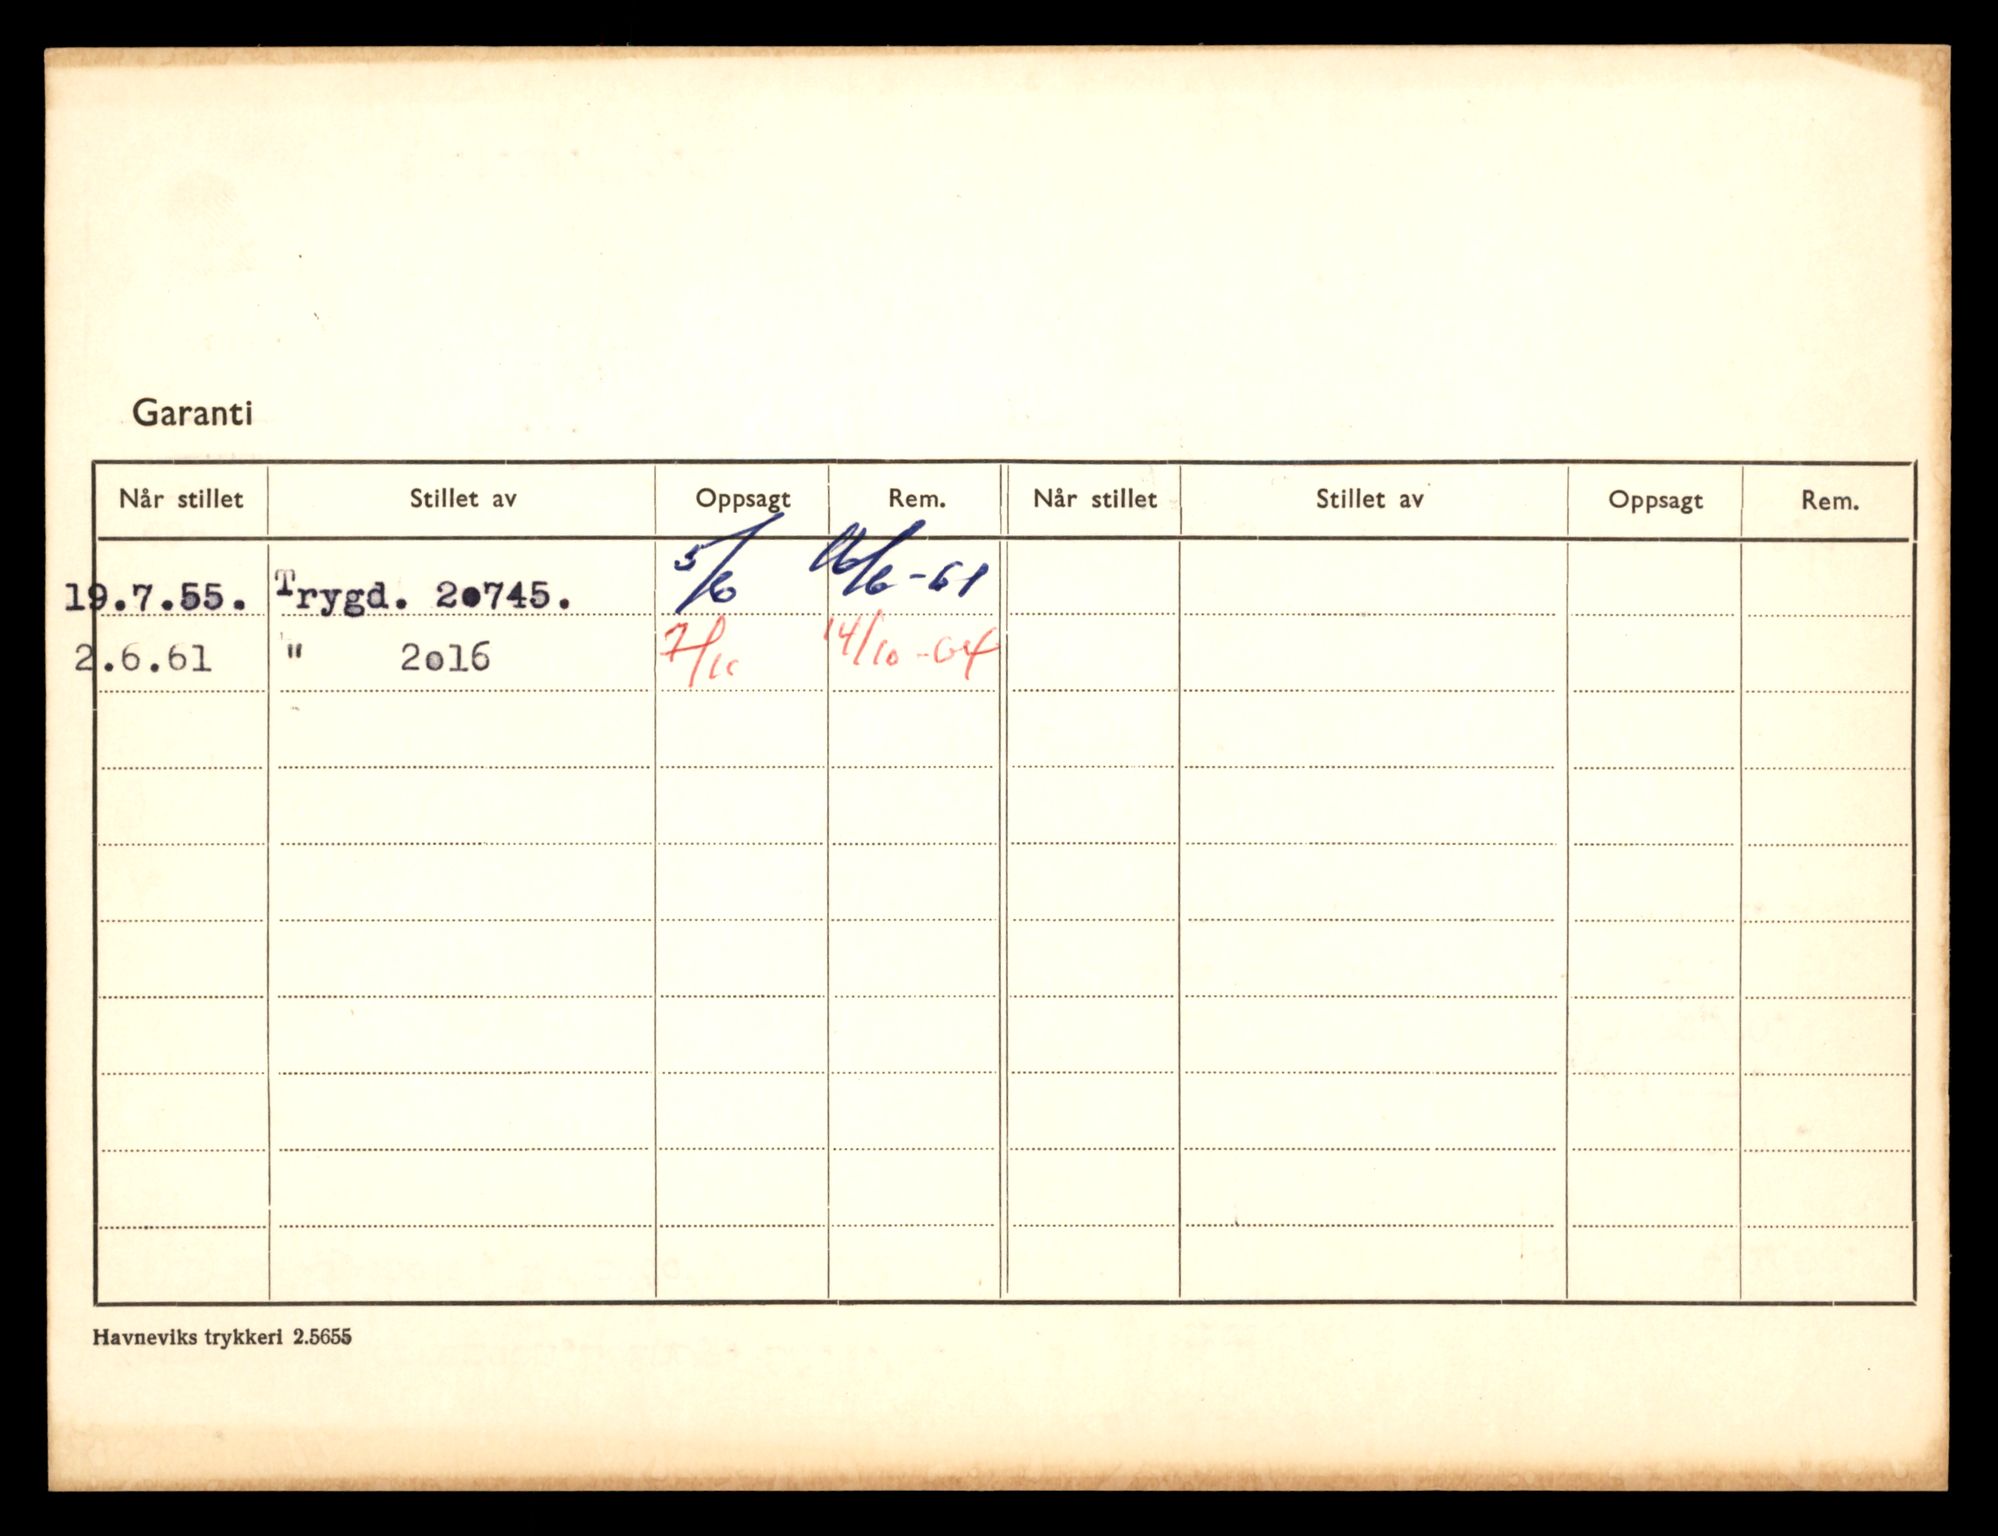 Garanti
Når stillet Stillet av Oppsagt Rem. Når stillet Stillet av Oppsagt Rem.
19.7.55. Trygd. 20745. 5/6 16/6-61
2.6.61 " 2016 7/10 14/10-64
Havneviks trykkeri 2.5655